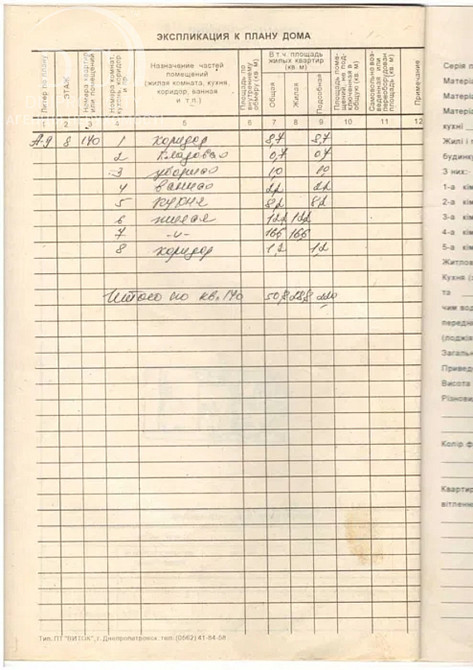 ЭКСПЛИКАЦИЯ К ПЛАНУ ДОМА
Литер по плану
ЭТАЖ
Номера квартир или помещений
Номера комнат, кухонь, коридор. и пр.
Назначение частей помещений (жилая комната, кухня, коридор, ванная и т.п.)
Площадь по внутреннему обмеру (кв. м)
В т.ч. площадь жилых квартир (кв. м)
Общая
Жилая
Подсобная
Самовольно воз- веденная или переоборудован площадь (кв. м)
Примечания
1 2 3 4 5 6 7 8 9 10 11 12
А-9 8 140 1 коридор 8,7 8,7
2 кладовая 0,7 0,7
3 уборная 1,0 1,0
4 ванная 2,2 2,2
5 кухня 8,2 8,2
6 жилая 12,2 12,2
7 -//- 16,6 16,6
8 коридор 1,2 1,2
Итого по кв. 140 50,8 28,8 22,0
Тип. ПТ "ВИТБА", г. Днепропетровск, тел. (0562) 41-84-58
Серія
Матеріа
Матеріа
Матеріа
кухні
Жилі і
будинку
З них:
1-а кім
2-а кім
3-а кім
4-а кім
5-а кім
Житлов
Кухня (
та
чим вод
передн
(лоджія
Загальн
Приведе
Висота
Різнови
Колір ф
Квартир
вітленн